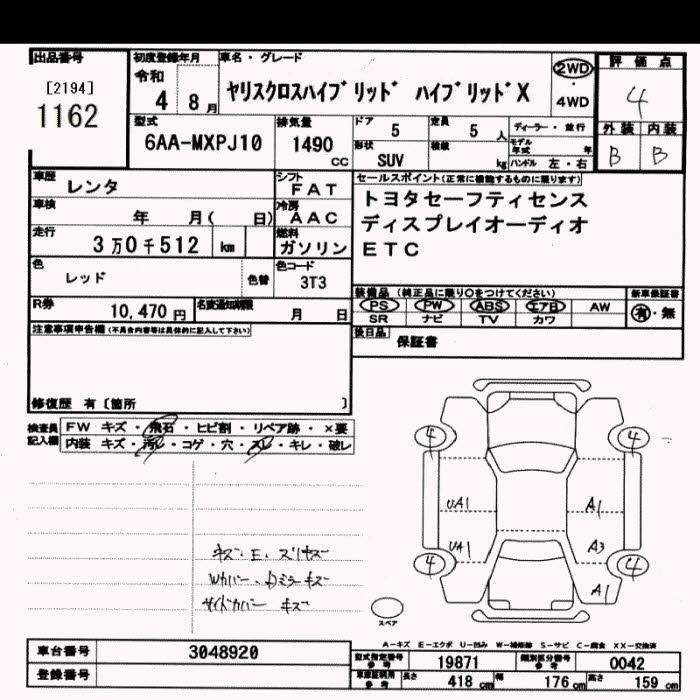 出品番号
[2194]
1162
初度登録年月
令和
4 8月
車名・グレード
ヤリスクロスハイブリッド ハイブリッドX
2WD
・
4WD
評価点
4
外装 内装
B B
型式
6AA-MXPJ10
排気量
1490
cc
ドア
5
定員
5 人
形状
SUV
積載
kg
ディーラー・並行
モデル年式 年
ハンドル 左・右
車歴
レンタ
シフト
FAT
車検
年 月( 日)
冷房
AAC
走行
3万0千512 km
燃料
ガソリン
色
レッド
色替
色コード
3T3
R券
10,470円
名変通知期限
月 日
セールスポイント(正常に機能するものに限ります)
トヨタセーフティセンス
ディスプレイオーディオ
ETC
装備品 (純正品に限り○をつけてください)
PS PW ABS エアB AW
SR ナビ TV カワ
新車保証書
有・無
後日品
保証書
注意事項申告欄(不具合内容等は具体的に記入して下さい)
修復歴 有〔箇所 〕
検査員
記入欄
FW キズ・飛石・ヒビ割・リペア跡・×要
内装 キズ・汚レ・コゲ・穴・スレ・キレ・破レ
キズ・E・スリキズ
Wカバー・Dミラーキズ
サイドカバー キズ
4 4
UA1 A1
UA1 A3
4 4
A1
スペア
A-キズ E-エクボ U-凹み W-補修跡 S-サビ C-腐食 XX-交換済
車台番号
3048920
登録番号
型式指定番号
参考
19871
類別区分番号
参考
0042
車庫証明用
参考
長さ 418 cm 幅 176 cm 高さ 159 cm